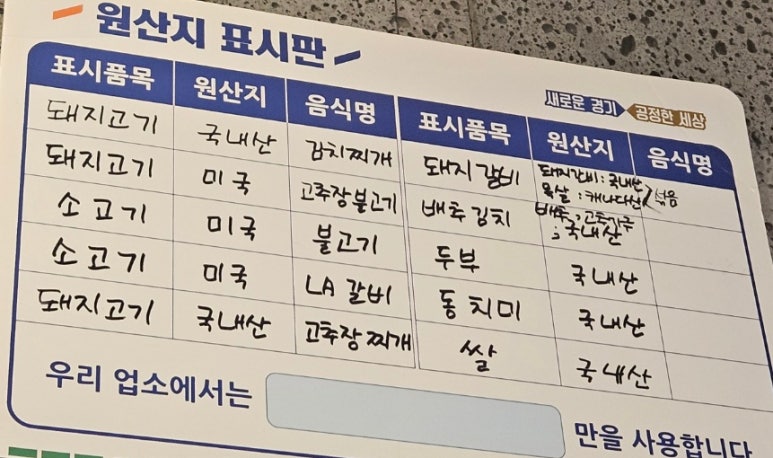 원산지 표시판
새로운 경기 공정한 세상
표시품목 원산지 음식명 표시품목 원산지 음식명
돼지고기 국내산 김치찌개 돼지갈비 돼지갈비 : 국내산 목살 : 캐나다산 섞음
돼지고기 미국 고추장불고기 배추김치 배추, 고춧가루 : 국내산
소고기 미국 불고기 두부 국내산
소고기 미국 LA갈비 동치미 국내산
돼지고기 국내산 고추장찌개 쌀 국내산
우리 업소에서는 만을 사용합니다